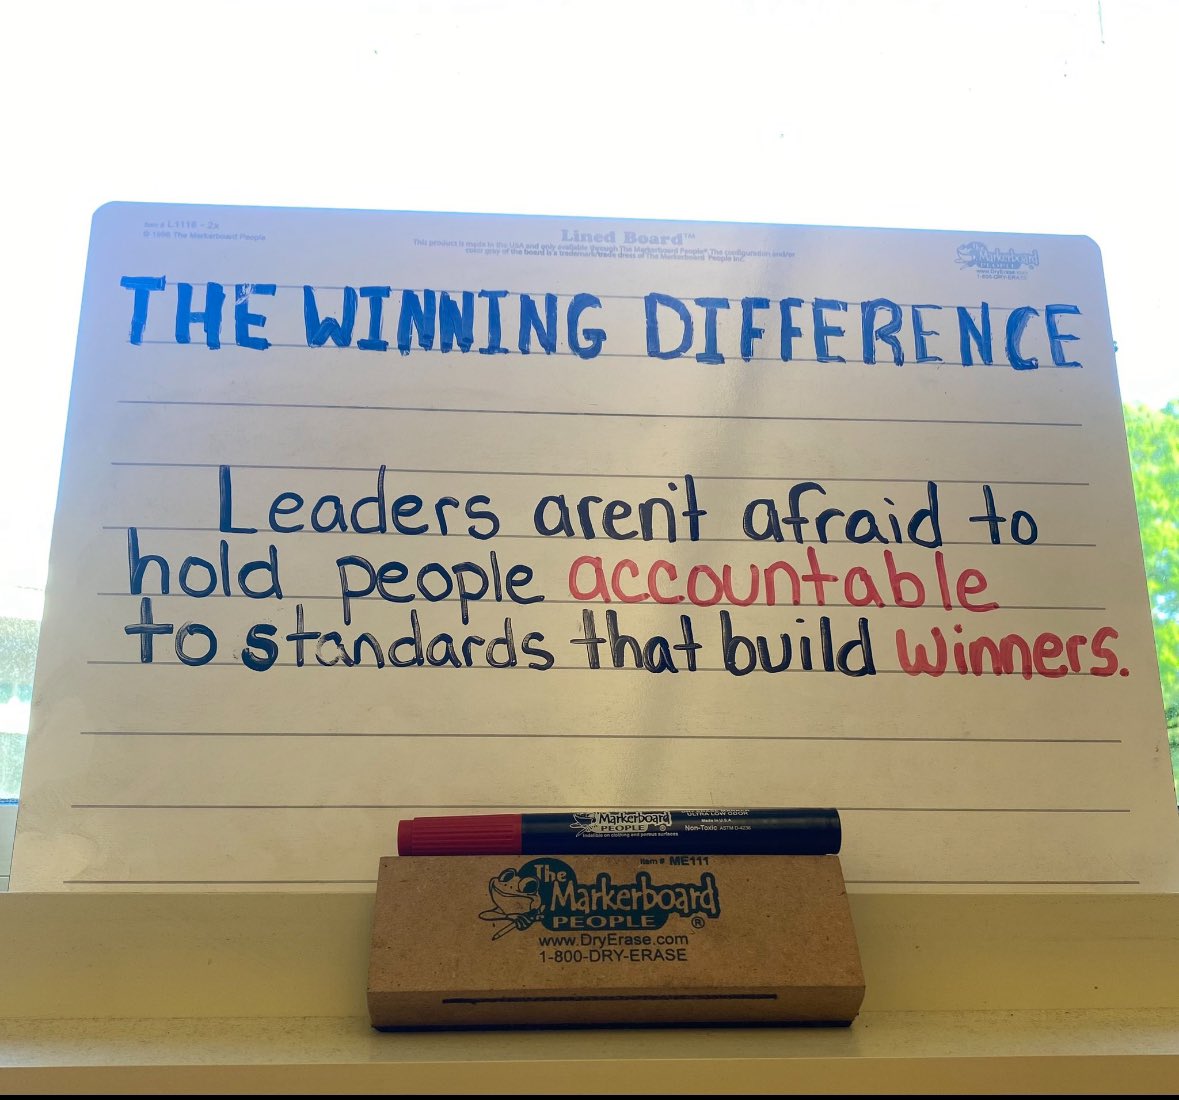 Item # L1116 - 2x
© 1996 The Markerboard People
Lined Board™
This product is made in the USA and only available through The Markerboard People® The configuration and/or
color gray of the board is a trademark/trade dress of The Markerboard People Inc.
The
Markerboard
PEOPLE
www.DryErase.com
1-800-DRY-ERASE
THE WINNING DIFFERENCE
Leaders aren't afraid to
hold people accountable
to standards that build winners.
Markerboard
PEOPLE ®
Indelible on clothing and porous surfaces
ULTRA LOW ODOR
Made in U.S.A.
Non-Toxic ASTM D-4236
Item # ME111
The
Markerboard
PEOPLE ®
www.DryErase.com
1-800-DRY-ERASE